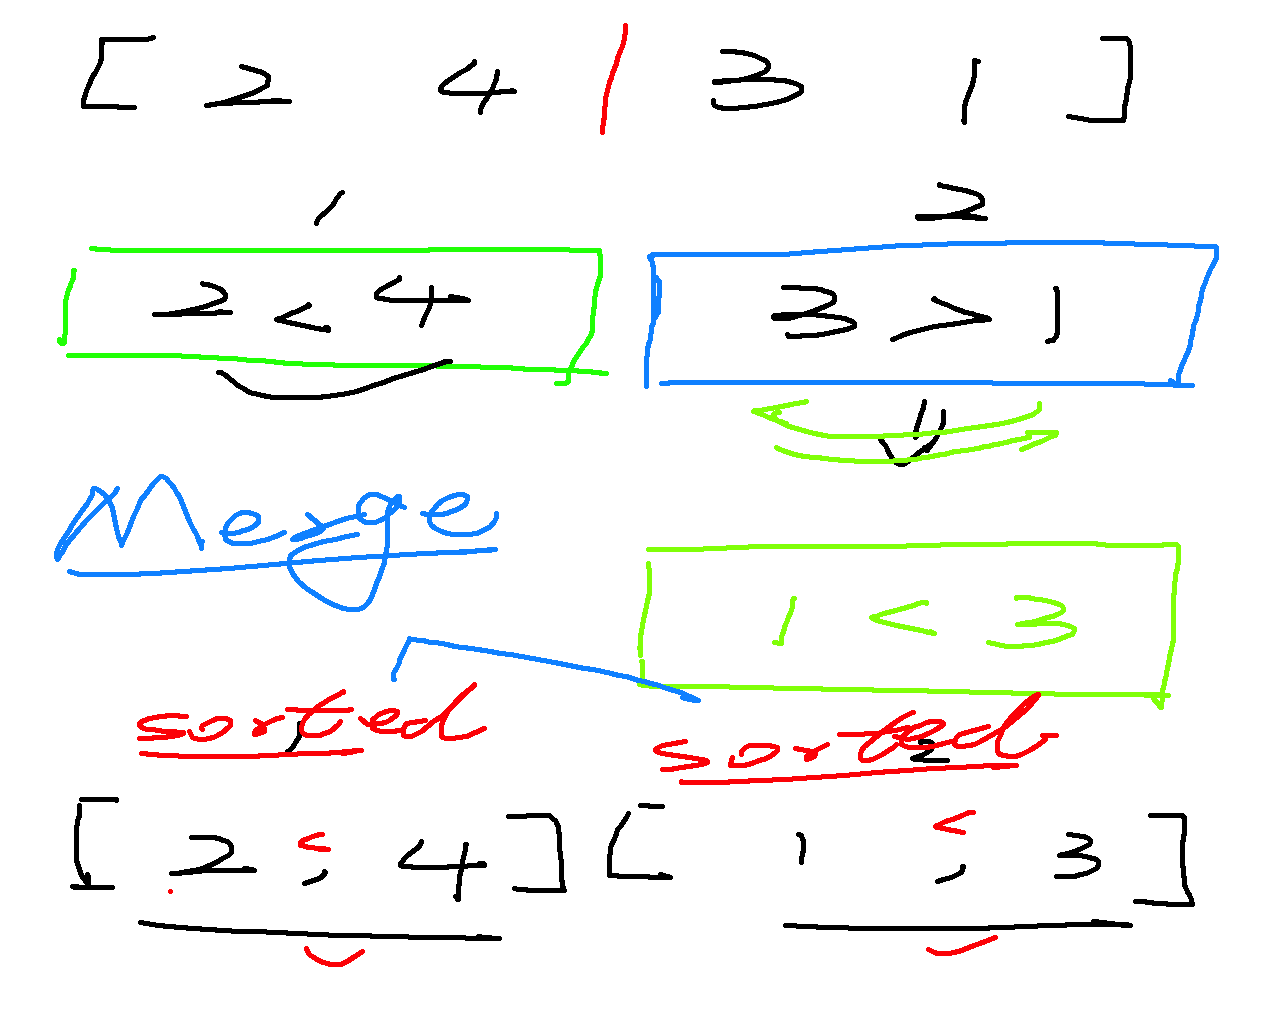 [ 2 4 | 3 1 ]
1 2
2 < 4 3 > 1
Merge
1 < 3
sorted sorted
1 2
[ 2 < , 4 ] [ 1 < , 3 ]